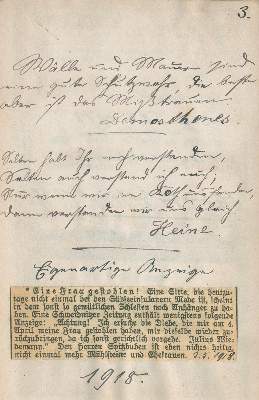 3.
Wälle und Mauern sind
eine gute Schutzwehr, die beste
aber ist das Mißtrauen.
Demosthenes.
Selten habt Ihr mich verstanden,
Selten auch verstand ich euch,
Nur wenn wir im Kot uns fanden,
dann verstanden wir uns gleich
Heine.
Eigenartige Anzeige
* Eine Frau gestohlen! Eine Sitte, die heutzu-
tage nicht einmal bei den Südseeinsulanern Mode ist, scheint
in dem sonst so gemütlichen Schlesien noch Anhänger zu ha-
ben. Eine Schweidnitzer Zeitung enthält wenigstens folgende
Anzeige: „Achtung! Ich ersuche die Diebe, die mir am 4.
April meine Frau gestohlen haben, dieselbe mir wieder zu-
rückzubringen, da ich sonst gerichtlich vorgehe. Julius
demann." Den Herren Spitzbuben ist eben nichts heilig,
nicht einmal mehr Mühlsteine und Ehefrauen. 1918.
1918.